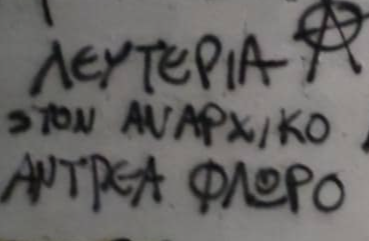 ΛΕΥΤΕΡΙΑ Ⓐ
ΣΤΟΝ ΑΝΑΡΧΙΚΟ
ΑΝΤΡΕΑ ΦΛΩΡΟ